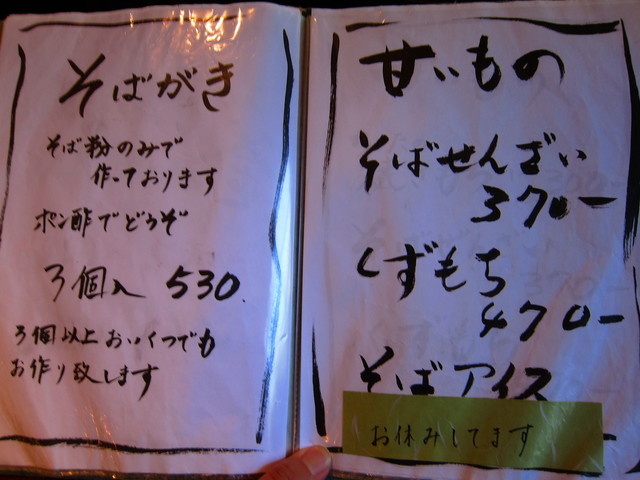 そばがき
そば粉のみで
作っております
ポン酢でどうぞ
3個入 530.
3個以上おいくつでも
お作り致します
甘いもの
そばぜんざい
370ー
くずもち
470ー
そばアイス
お休みしてます